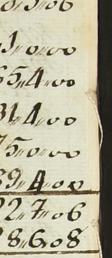 51"0"00
65"4"00
31"4"00
75"0"00
39"4"00
22"7"06
28"6"08